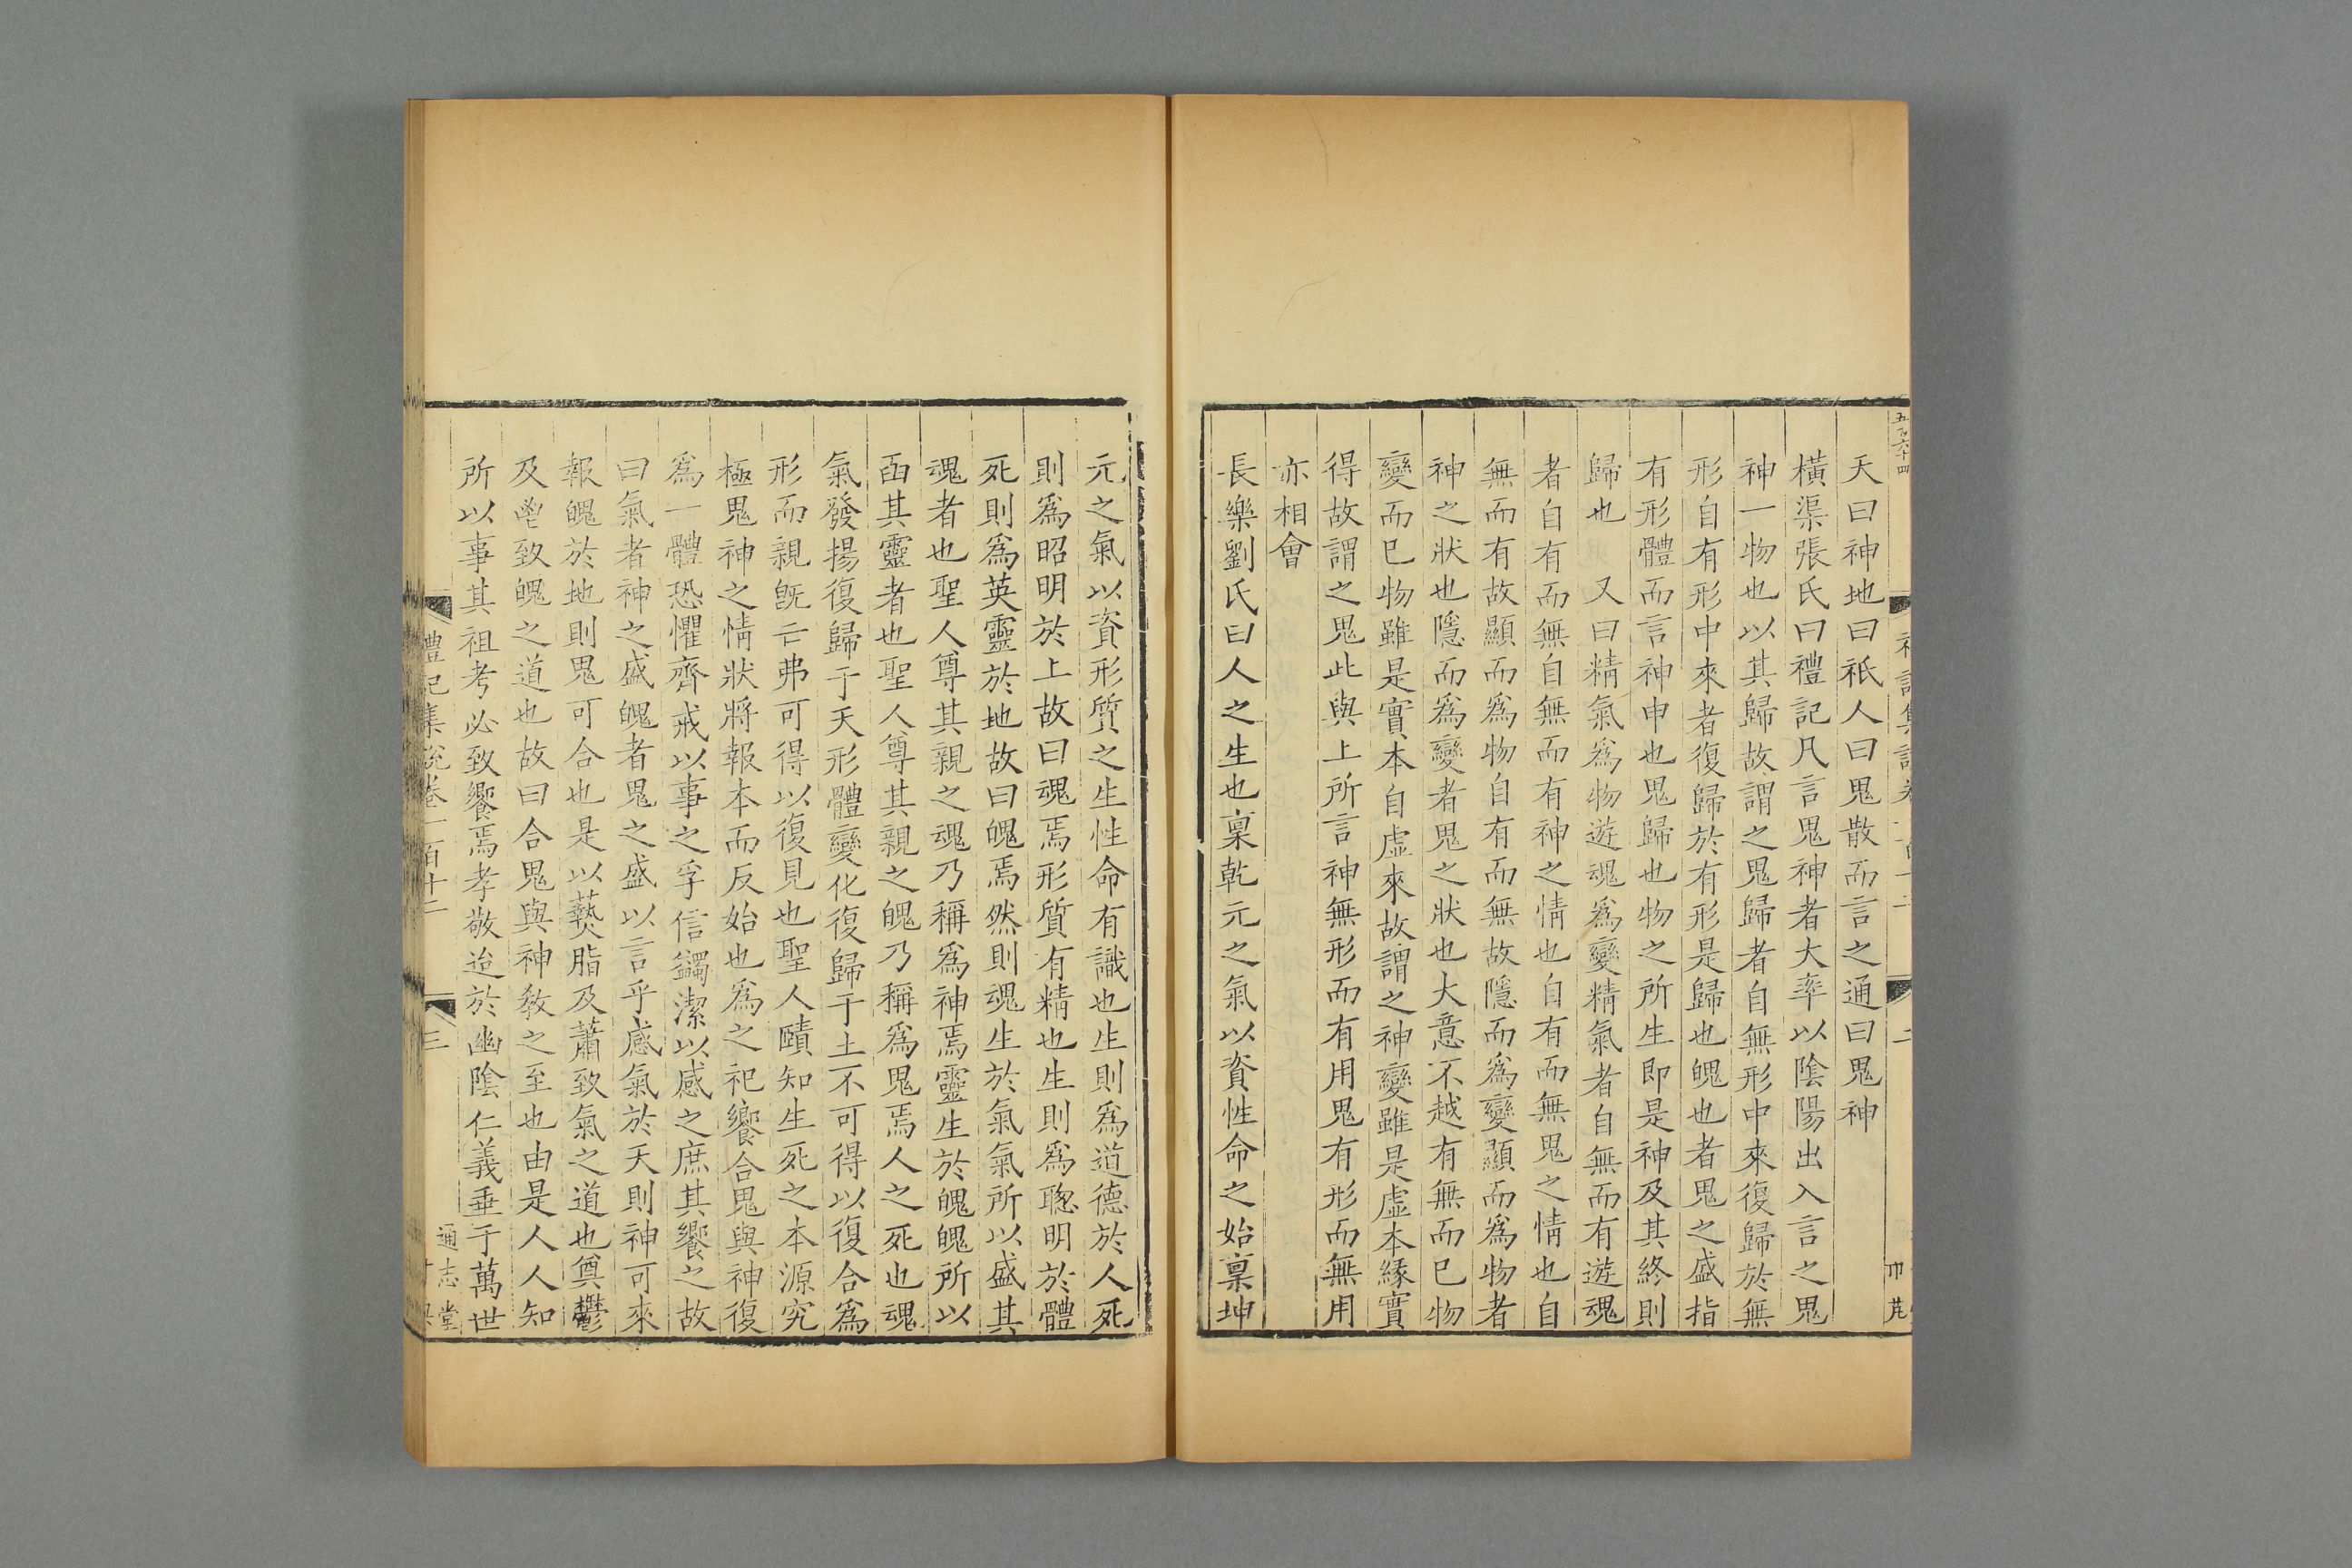 五百六十四
二
天曰神地曰祇人曰鬼散而言之通曰鬼神
橫渠張氏曰禮記凡言鬼神者大率以陰陽出入言之鬼
神一物也以其歸故謂之鬼歸者自無形中來復歸於無
形自有形中來者復歸於有形是歸也魄也者鬼之盛指
有形體而言神申也鬼歸也物之所生即是神及其終則
歸也　又曰精氣爲物遊魂爲變精氣者自無而有遊魂
者自有而無自無而有神之情也自有而無鬼之情也自
無而有故顯而爲物自有而無故隱而爲變顯而爲物者
神之狀也隱而爲變者鬼之狀也大意不越有無而已物
變而已物雖是實本自虛來故謂之神變雖是虛本緣實
得故謂之鬼此與上所言神無形而有用鬼有形而無用
亦相會
長樂劉氏曰人之生也稟乾元之氣以資性命之始稟坤
元之氣以資形質之生性命有識也生則爲道德於人死
則爲昭明於上故曰魂焉形質有精也生則爲聰明於體
死則爲英靈於地故曰魄焉然則魂生於氣氣所以盛其
魂者也聖人尊其親之魂乃稱爲神焉靈生於魄魄所以
函其靈者也聖人尊其親之魄乃稱爲鬼焉人之死也魂
氣發揚復歸于天形體變化復歸于土不可得以復合爲
形而親旣亡弗可得以復見也聖人賾知生死之本源究
極鬼神之情狀將報本而反始也爲之祀饗合鬼與神復
爲一體恐懼齊戒以事之孚信蠲潔以感之庶其饗之故
曰氣者神之盛魄者鬼之盛以言乎感氣於天則神可來
報魄於地則鬼可合也是以爇脂及蕭致氣之道也奠鬱
及鬯致魄之道也故曰合鬼與神敎之至也由是人人知
所以事其祖考必致饗焉孝敬迨於幽陰仁義垂于萬世
禮記集說卷一百十二
三
通志堂